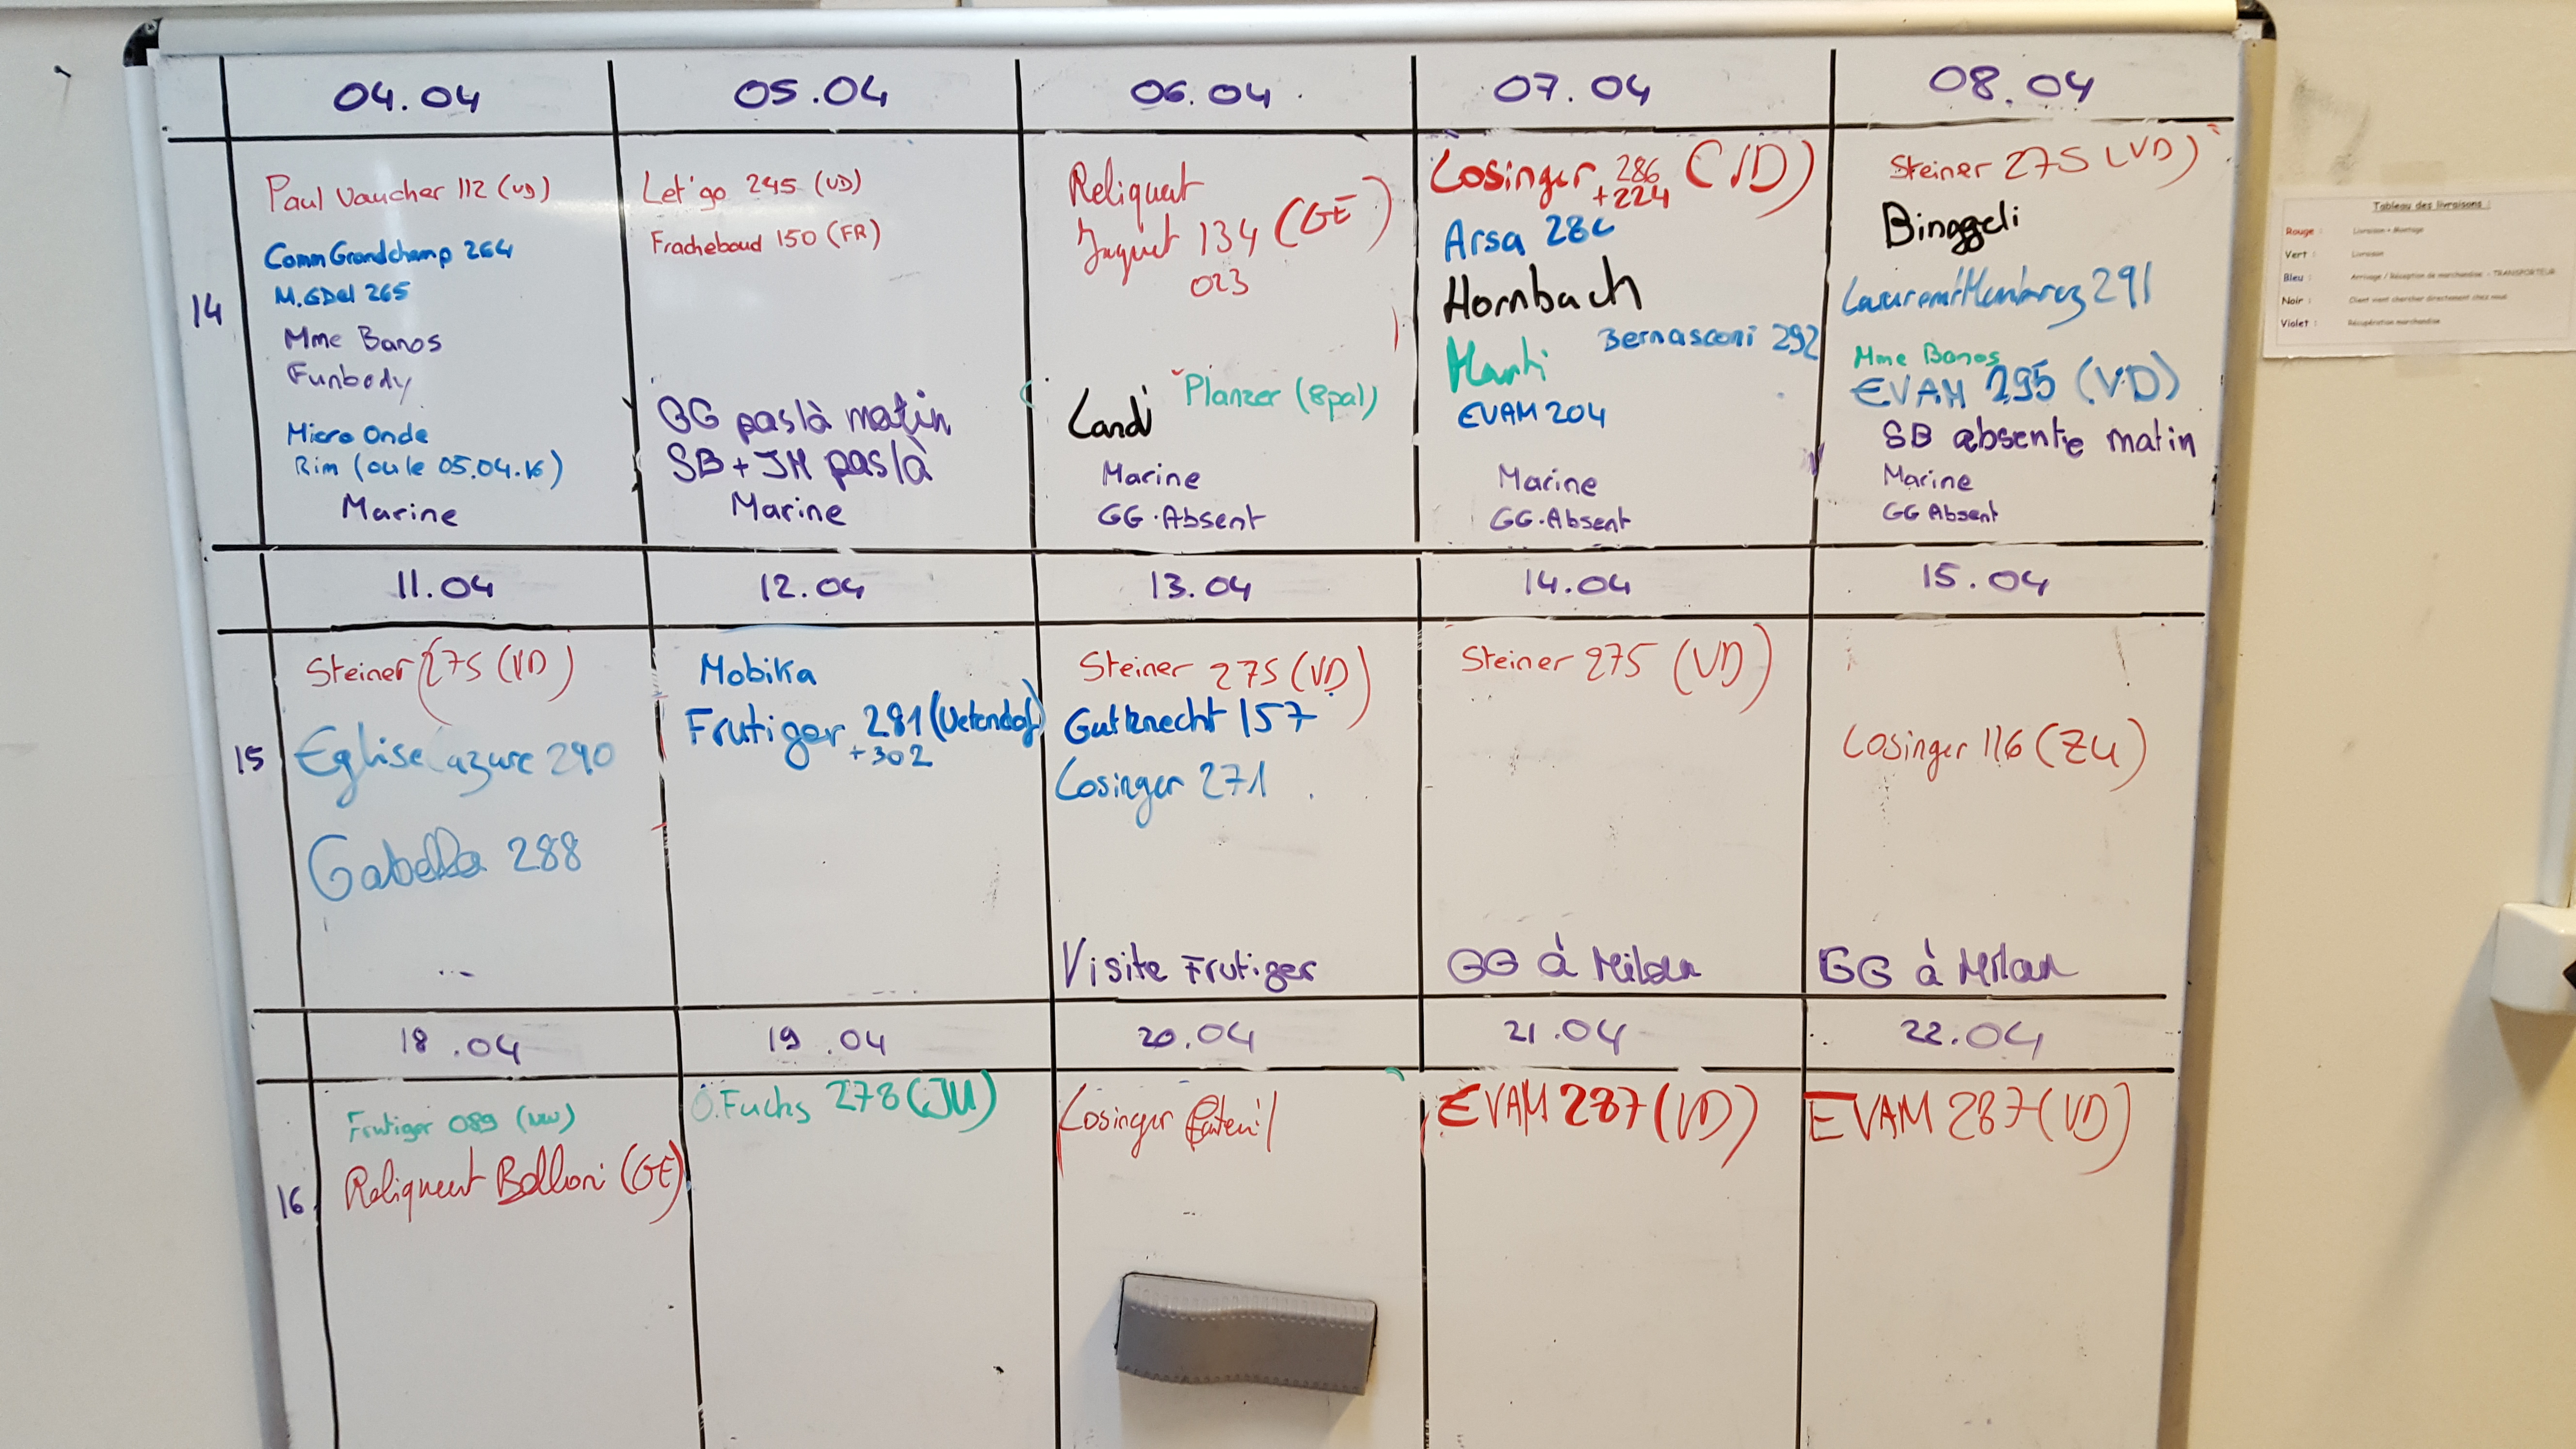 04.04
05.04
06.04
07.04
08.04
14
Paul Vaucher 112 (VD)
Comm Grandchamp 264
M.GDel 265
Mme Banos
Funbody
Micro Onde
Rim (ou le 05.04.16)
Marine
Let'go 245 (VD)
Fracheboud 150 (FR)
GG pas là matin
SB + JM pas là
Marine
Reliquat
Juquet 134 (GE)
023
Planzer (8pal)
Landi
Marine
GG.Absent
Losinger 286 (VD)
+224
Arsa
Hornbach
Bernasconi 292
Marti
EVAM 204
Marine
GG.Absent
Steiner 275 (VD)
Binggeli
291
Mme Banos
EVAM 295 (VD)
SB absente matin
Marine
GG Absent
11.04
12.04
13.04
14.04
15.04
15
Steiner 275 (VD)
Eglise azure 290
Gabella 288
Mobika
Frutiger 281 (Uetendof)
+302
Steiner 275 (VD)
Gutknecht 157
Losinger 271
Visite Frutiger
Steiner 275 (VD)
GG à Milan
Losinger 116 (ZU)
GG à Milan
18.04
19.04
20.04
21.04
22.04
16
Frutiger 089 (NW)
Reliquat (GE)
O.Fuchs 278 (JU)
Losinger
EVAM 287 (VD)
EVAM 287 (VD)
Tableau des livraisons :
Rouge : Livraison + Montage
Vert : Livraison
Bleu : Arrivage / Réception de marchandise - TRANSPORTEUR
Noir : Client vient chercher directement chez nous
Violet : Récupération marchandise